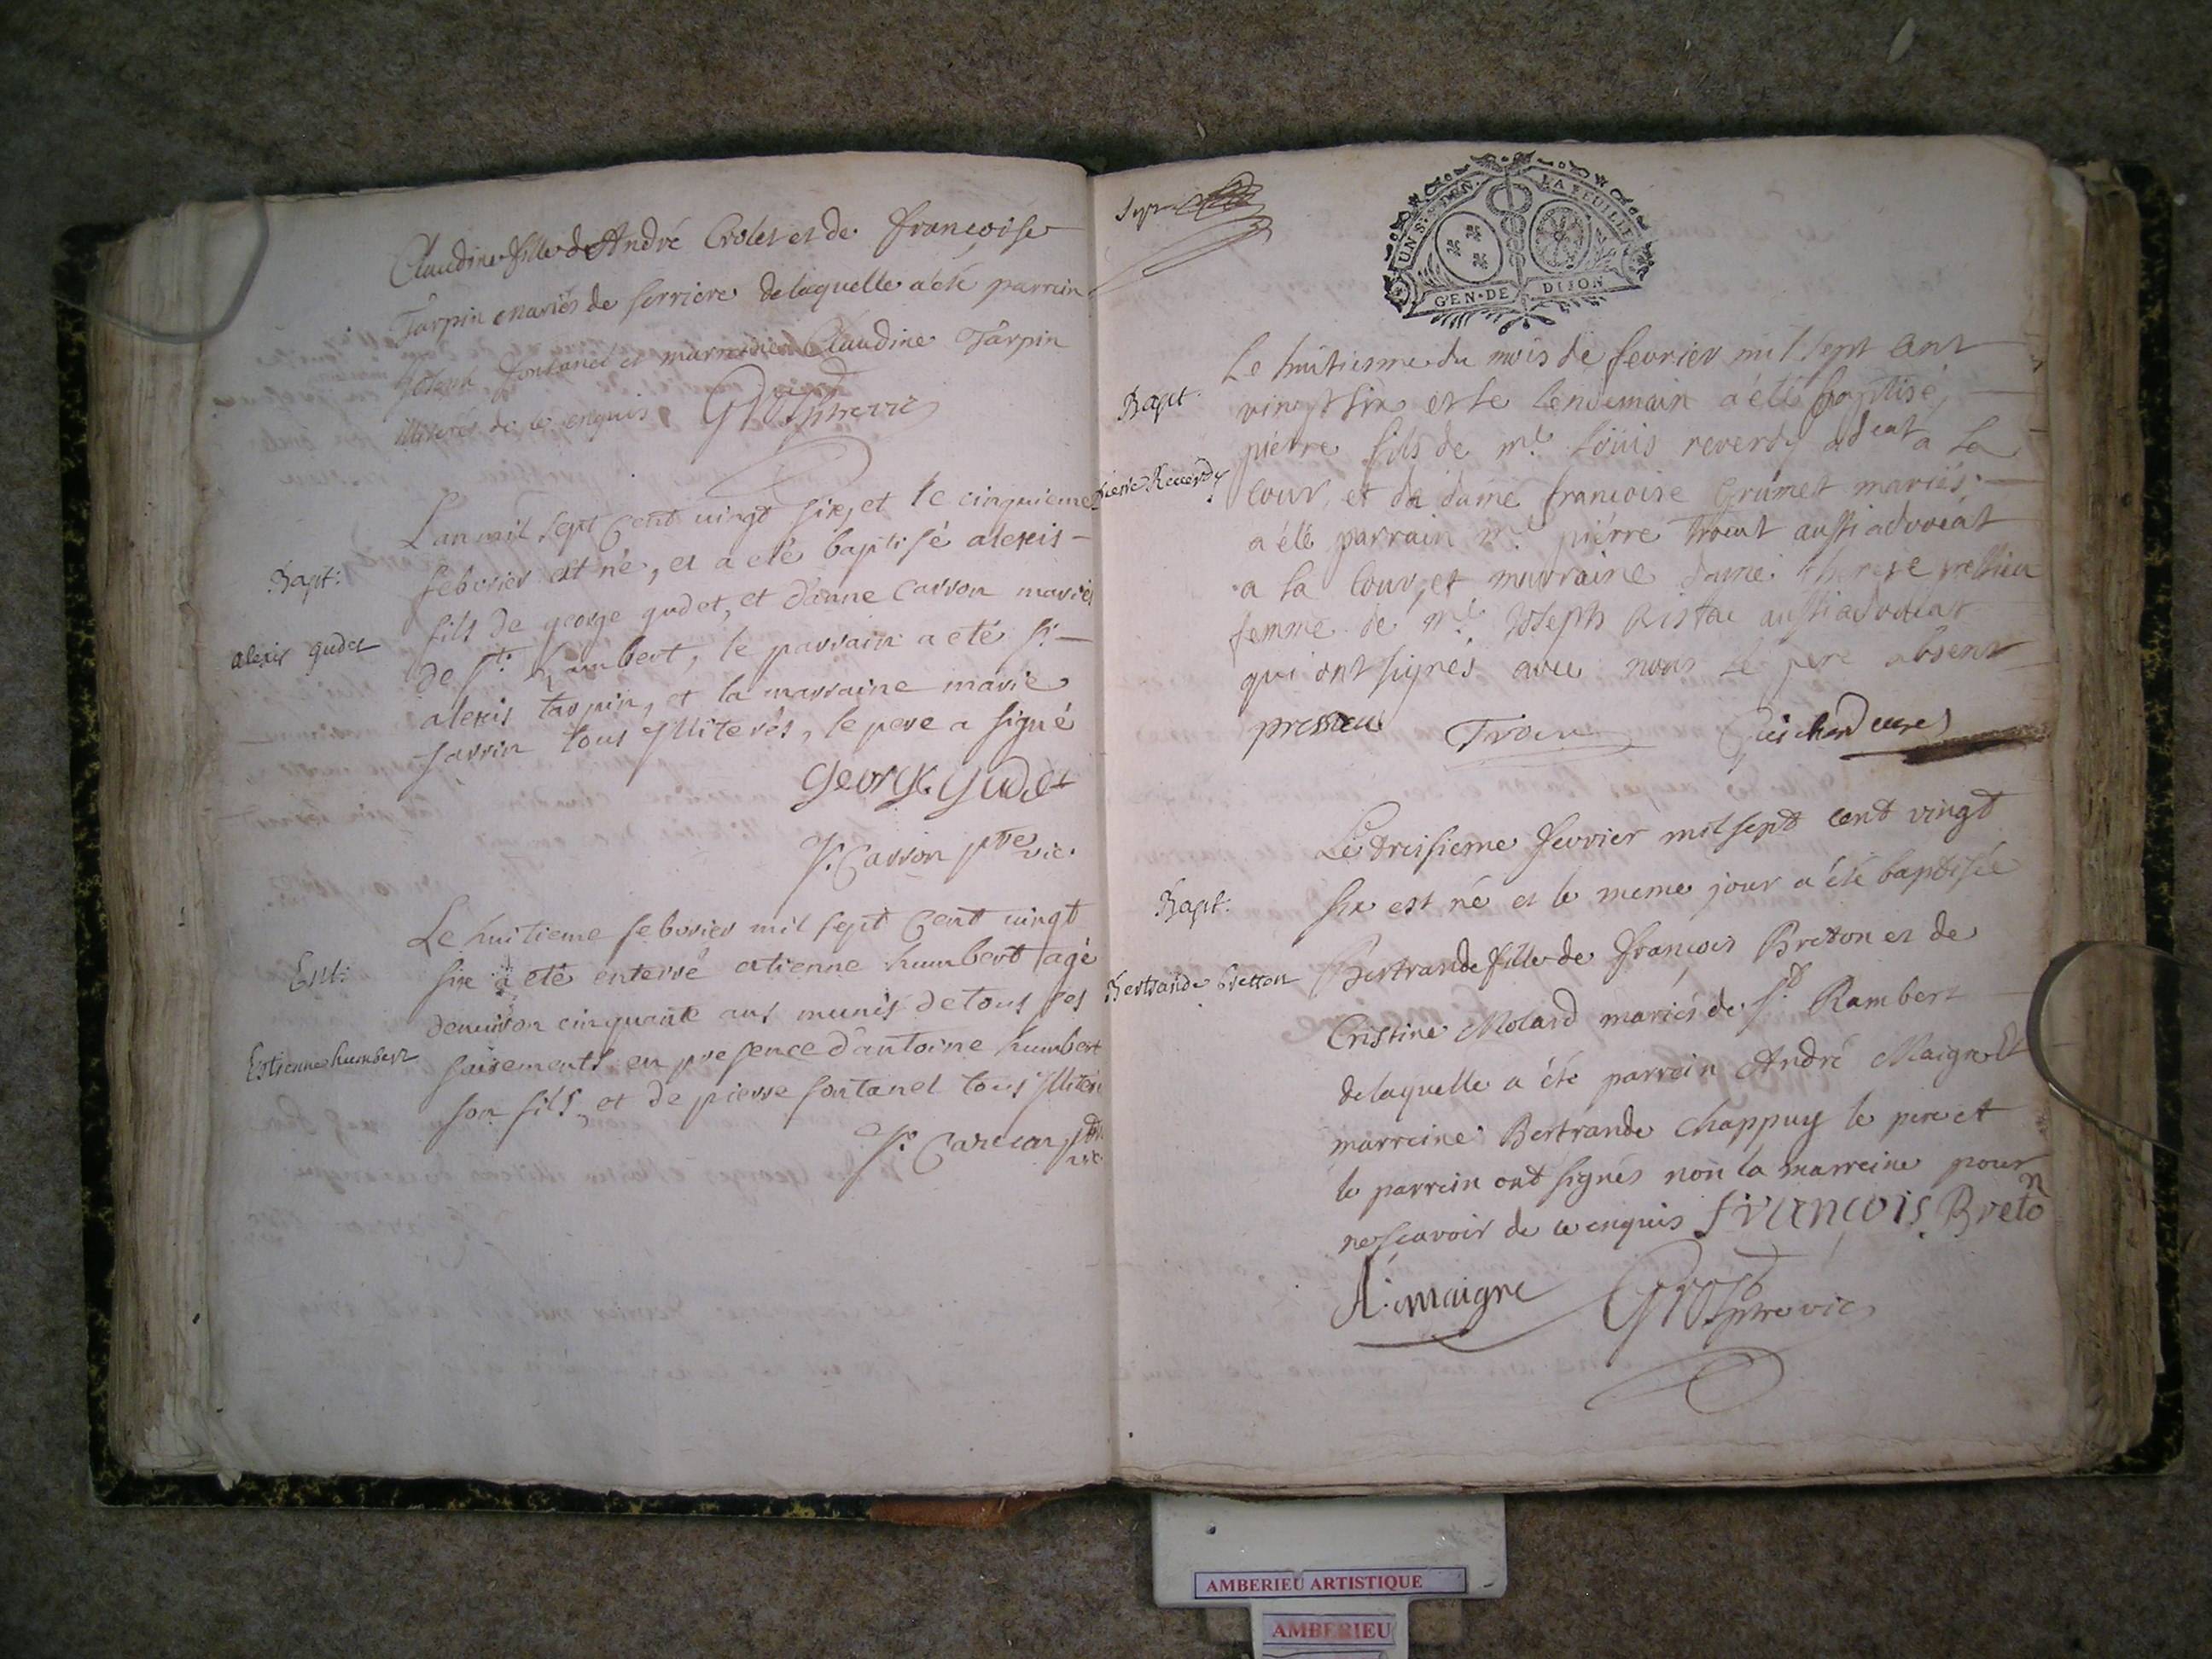 Claudine fille d'André Crolet et de françoise
Tarpin mariés de serriere delaquelle a été parrein
Joseph fontanel et marreine Claudine Tarpin
illiterés de ce enquis Gros ptre vic
Bapt:
alexis gudet
L'an mil sept Cent vingt six, et le cinquieme
febvrier est né, et a eté baptisé alexis
fils de george gudet, et d'anne Carron mariés
de st. Rambert, le parrain a eté sr.
alexis tarpin, et la marraine marie
sarrin tous illiterés, le pere a signé
George gudet
J. Carron ptre vic.
Ent:
Estienne humbert
Le huitieme febvrier mil sept Cent vingt
six a eté enterré etienne humbert agé
denviron cinquante ans munis de tous ses
sacrements en presence d'antoine humbert
son fils et de pierre fontanel tous illiteré
J. Carron ptre
vic
UN S. 8 DEN. LA FEUILLE
GEN. DE DIJON
Bapt.
pierre Reverdy
Le huitiesme du mois de fevrier mil sept cent
vingt six et le lendemain a été baptisé
pierre fils de me. Loüis reverdy adcat a la
cour, et de dame francoise Grumet mariés.
a été parrain me. piérre Trocut aussi advocat
a la cour, et marraine dame therese pressieu
femme de me. Joseph Ristae aussi advocat
qui ont signés avec nous le pere absent
pressieu Trocu Guichard curé
Bapt.
Bertrande bretton
Le treisieme fevrier mil sept cent vingt
six est né et le meme jour a été baptisée
Bertrande fille de françois Breton et de
Cristine Molard mariés de st. Rambert
delaquelle a été parrein André Maigre Et
marreine Bertrande Chappuy le pere et
le parrein ont signés non la marreine pour
ne scavoir de ce enquis françois Breton
A. maigre Gros ptre vic
AMBERIEU ARTISTIQUE
AMBERIEU